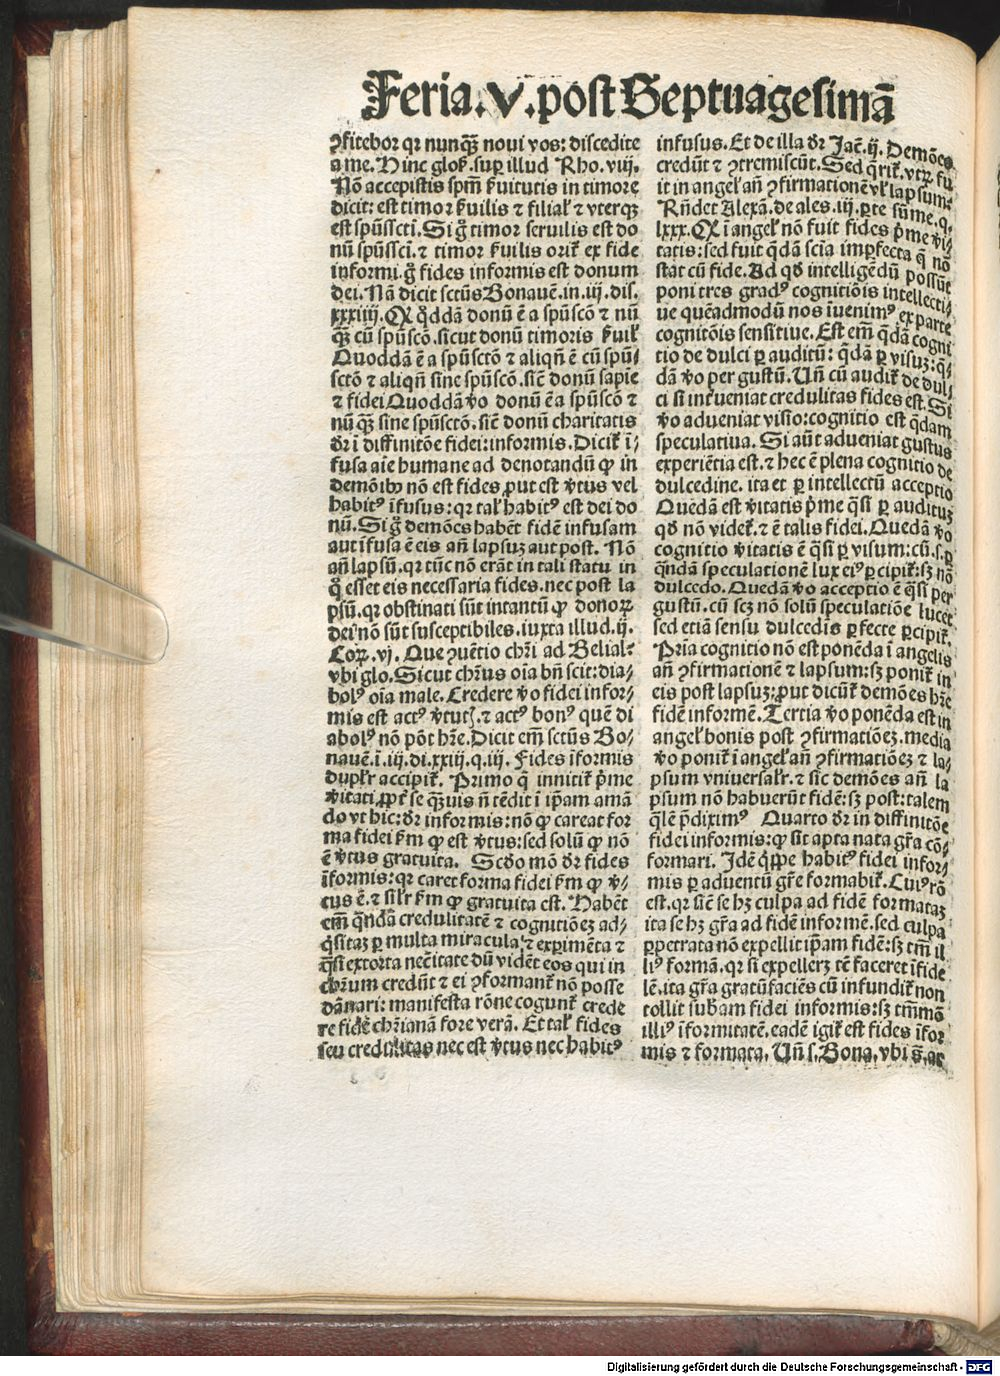 Feria.v.post Septuagesimā
ꝯfitebor qꝛ nunqꝫ̄ noui vos: discedite
a me. Hinc gloſ. ſuꝑ illud Rho. viij.
Nō accepistis spm̄ ẜuitutis in timore
dicit: est timor ẜuilis ⁊ filial' ⁊ vterqꝫ
est spūsscti. Si gͦ timor seruilis est do
nū spūssci. ⁊ timor ẜuilis orit̄ ex fide
informi. gͦ fides informis est donum
dei. Nā dicit sctūs Bonauē. in. iij. dis.
xxxiiij. Qꝫ qͦddā donū ē a spūscō ⁊ nū
qꝫ̄ cū spūscō. sicut donū timoris ẜuil'
Quoddā ē a spūsctō ⁊ aliqn̄ ē cū spū⸗
sctō ⁊ aliqn̄ sine spūscō. sic̄ donū sapie
⁊ fidei Quoddā ꝟo donū ē a spūscō ⁊
nūqꝫ̄ sine spūsctō. sic̄ donū charitatis
dr̄ ī diffinitōe fidei: informis. Dicit̄ ī⸗
fusa aīe humane ad denotandū ꝙ in
demōibꝰ nō est fides ꝓut est ꝟtus vel
habitꝰ īfusus: qꝛ tal' habitꝰ est dei do
nū. Si gͦ demōes habēt fidē infusam
aut īfusa ē eis an̄ lapsuꝫ aut post. Nō
an̄ lapsū. qꝛ tūc nō erāt in tali statu in
qͦ esset eis necessaria fides. nec post la
psū. qꝛ obstinati sūt intantū ꝙ donoꝝ
dei nō sūt susceptibiles. iuxta illud. ij.
Coꝝ. vj. Que ꝯuētio chr̄i ad Belial?
vbi glo. Sicut chr̄us oīa bn̄ scit: dia⸗
bolꝰ oīa male. Credere ꝟo fidei infor⸗
mis est actꝰ ꝟtutꝭ. ⁊ actꝰ bonꝰ quē di
abolꝰ nō pōt hr̄e. Dicit em̄ sctūs Bo⸗
nauē. ī. iij. di. xxiij. q. iij. Fides īformis
duplr̄ accipit̄. Primo q̄ innitit̄ pͥme
ꝟitati ꝓpt̄ se qꝫ̄uis n̄ tēdit ī ip̄am amā
do vt hic: dr̄ informis: nō ꝙ careat for
ma fidei ẜm ꝙ est ꝟtus: sed solū ꝙ nō
ē ꝟtus gratuita. Scd̄o mō dr̄ fides
īformis: qꝛ caret forma fidei ẜm ꝙ ꝟ⸗
tus ē. ⁊ silr̄ ẜm ꝙ gratuita est. Habēt
em̄ qͣndā credulitatē ⁊ cognitiōeꝫ ad⸗
qͥsitaꝫ ꝑ multa miracula ⁊ exꝑimēta ⁊
qͣsi extorta nec̄itate dū vidēt eos qui in
chr̄um credūt ⁊ ei ꝯformant̄ nō posse
dānari: manifesta rōne cogunt̄ crede
re fidē chr̄ianā fore verā. Et tal' fides
seu credulitas nec est ꝟtus nec habitꝰ
infusus. Et de illa dr̄ Jac̄. ij. Demōes
credūt ⁊ ꝯtremiscūt. Sed qͥrit̄. vtꝝ fu
it in angel' an̄ ꝯfirmationē vl' lapsum.
Rn̄det Alexā. de ales. iij. ꝑte sūme. q.
lxxx. Qꝫ ī angel' nō fuit fides pͥme ꝟi⸗
tatis: sed fuit qͣdā scīa imꝑfecta q̄ nō
stat cū fide. Ad qd̄ intelligēdū possūt
poni tres gradꝰ cognitiōis intellecti⸗
ue quēadmodū nos īuenimꝰ ex parte
cognitōis sensitiue. Est em̄ qͣdā cogni
tio de dulci ꝑ auditū: qͣdā ꝑ visuꝫ: qͣ⸗
dā ꝟo per gustū. Un̄ cū audit̄ de dul⸗
ci si inueniat credulitas fides est. Si
ꝟo adueniat visio: cognitio est qͣdam
speculatiua. Si aūt adueniat gustus
experiētia est. ⁊ hec ē plena cognitio de
dulcedine. ita et ꝑ intellectū acceptio
Quedā est ꝟitatis pͥme qͣsi ꝑ audituꝫ
qd̄ nō videt̄. ⁊ ē talis fidei. Quedā ꝟo
cognitio ꝟitatis ē qͣsi ꝑ visum: cū. s. ꝑ
qͣndā speculationē lux eiꝰ ꝑcipit̄: sꝫ nō
dulcedo. Quedā ꝟo acceptio ē qͣsi per
gustū. cū scꝫ nō solū speculatiōe lucet
sed etiā sensu dulcedis ꝑfecte ꝑcipit̄.
Pria cognitio nō est ponēda ī angelis
an̄ ꝯfirmationē ⁊ lapsum: sꝫ ponit̄ in
eis post lapsuꝫ: ꝓut dicūt̄ demōes hr̄e
fidē informē. Tertia ꝟo ponēda est in
angel' bonis post ꝯfirmatiōeꝫ. media
ꝟo ponit̄ ī angel' an̄ ꝯfirmatiōeꝫ ⁊ la⸗
psum vniuersalr̄. ⁊ sic demōes an̄ la
psum nō habuerūt fidē: sꝫ post: talem
qͣlē pͥdiximꝰ Quarto dr̄ in diffinitōe
fidei informis: ꝙ sit apta nata gr̄a cō⸗
formari. Idē qͥppe habitꝰ fidei infor⸗
mis ꝑ aduentū gr̄e formabit̄. Cuiꝰ rō
est. qꝛ sic̄ se hꝫ culpa ad fidē formataꝫ
ita se hꝫ gr̄a ad fidē informē. sed culpa
ꝑpetrata nō expellit ip̄am fidē: sꝫ tm̄ il
liꝰ formā. qꝛ si expelleꝫ tē faceret īfide
lē. ita gr̄a gratūfaciēs cū infundit̄ non
tollit subam fidei informis: sꝫ tm̄mō
illiꝰ īformitatē. eadē igit̄ est fides īfor
mis ⁊ formata. Un̄ s. Bona. vbi s̄. ar
Digitalisierung gefördert durch die Deutsche Forschungsgemeinschaft - DFG